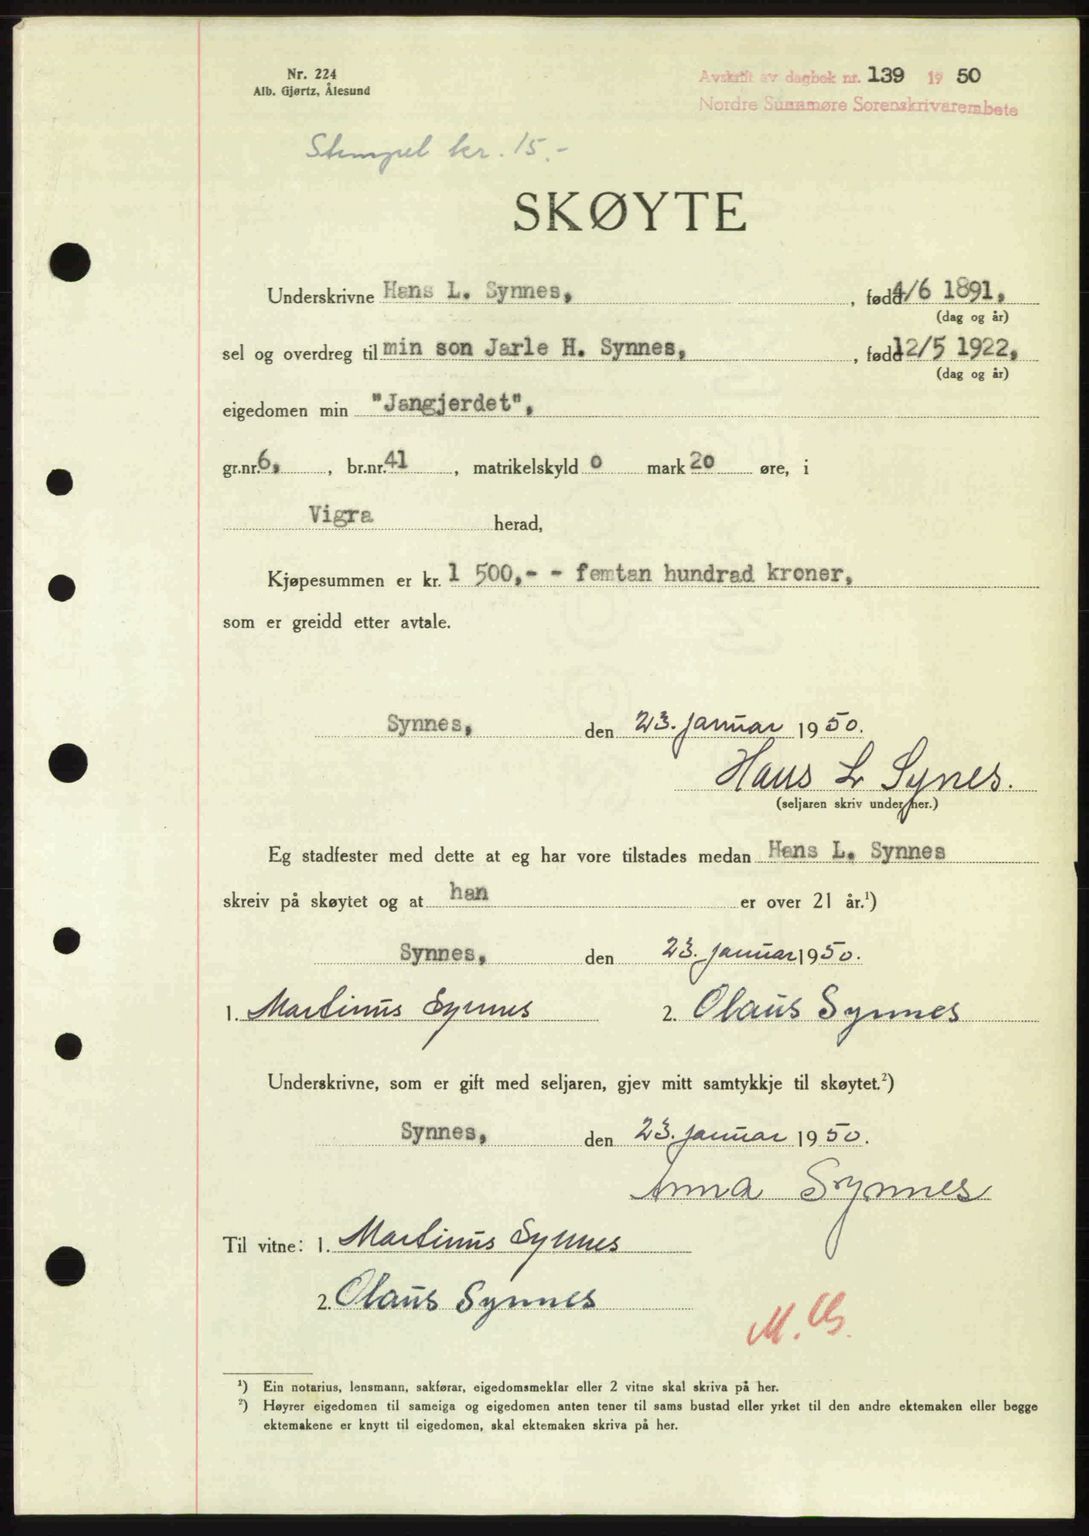 Nr. 224
Alb. Gjørtz, Ålesund
Avskrift av dagbok nr. 139 19 50
Nordre Sunnmøre Sorenskrivarembete
Stempel kr. 15.-
SKØYTE
Underskrivne Hans L. Synnes, , fødd 4/6 1891,
(dag og år)
sel og overdreg til min son Jarle H. Synnes, , fødd 12/5 1922,
(dag og år)
eigedomen min "Jangjerdet",
gr.nr. 6, , br.nr. 41 , matrikelskyld 0 mark 20 øre, i
Vigra herad,
Kjøpesummen er kr. 1 500,- - femtan hundrad kroner,
som er greidd etter avtale.
Synnes, den 23. januar 1950.
Hans L Synes.
(seljaren skriv under her.)
Eg stadfester med dette at eg har vore tilstades medan Hans L. Synnes
skreiv på skøytet og at han er over 21 år.¹)
Synnes, den 23. januar 1950.
1. Martinus Synnes 2. Olaus Synnes
Underskrivne, som er gift med seljaren, gjev mitt samtykkje til skøytet.²)
Synnes, den 23. januar 1950.
Anna Synnes
Til vitne: 1. Martinus Synnes
2. Olaus Synnes
¹) Ein notarius, lensmann, sakførar, eigedomsmeklar eller 2 vitne skal skriva på her.
²) Høyrer eigedomen til sameiga og eigedomen anten tener til sams bustad eller yrket til den andre ektemaken eller begge
ektemakene er knytt til eigedomen, skal ektemaken skriva på her.